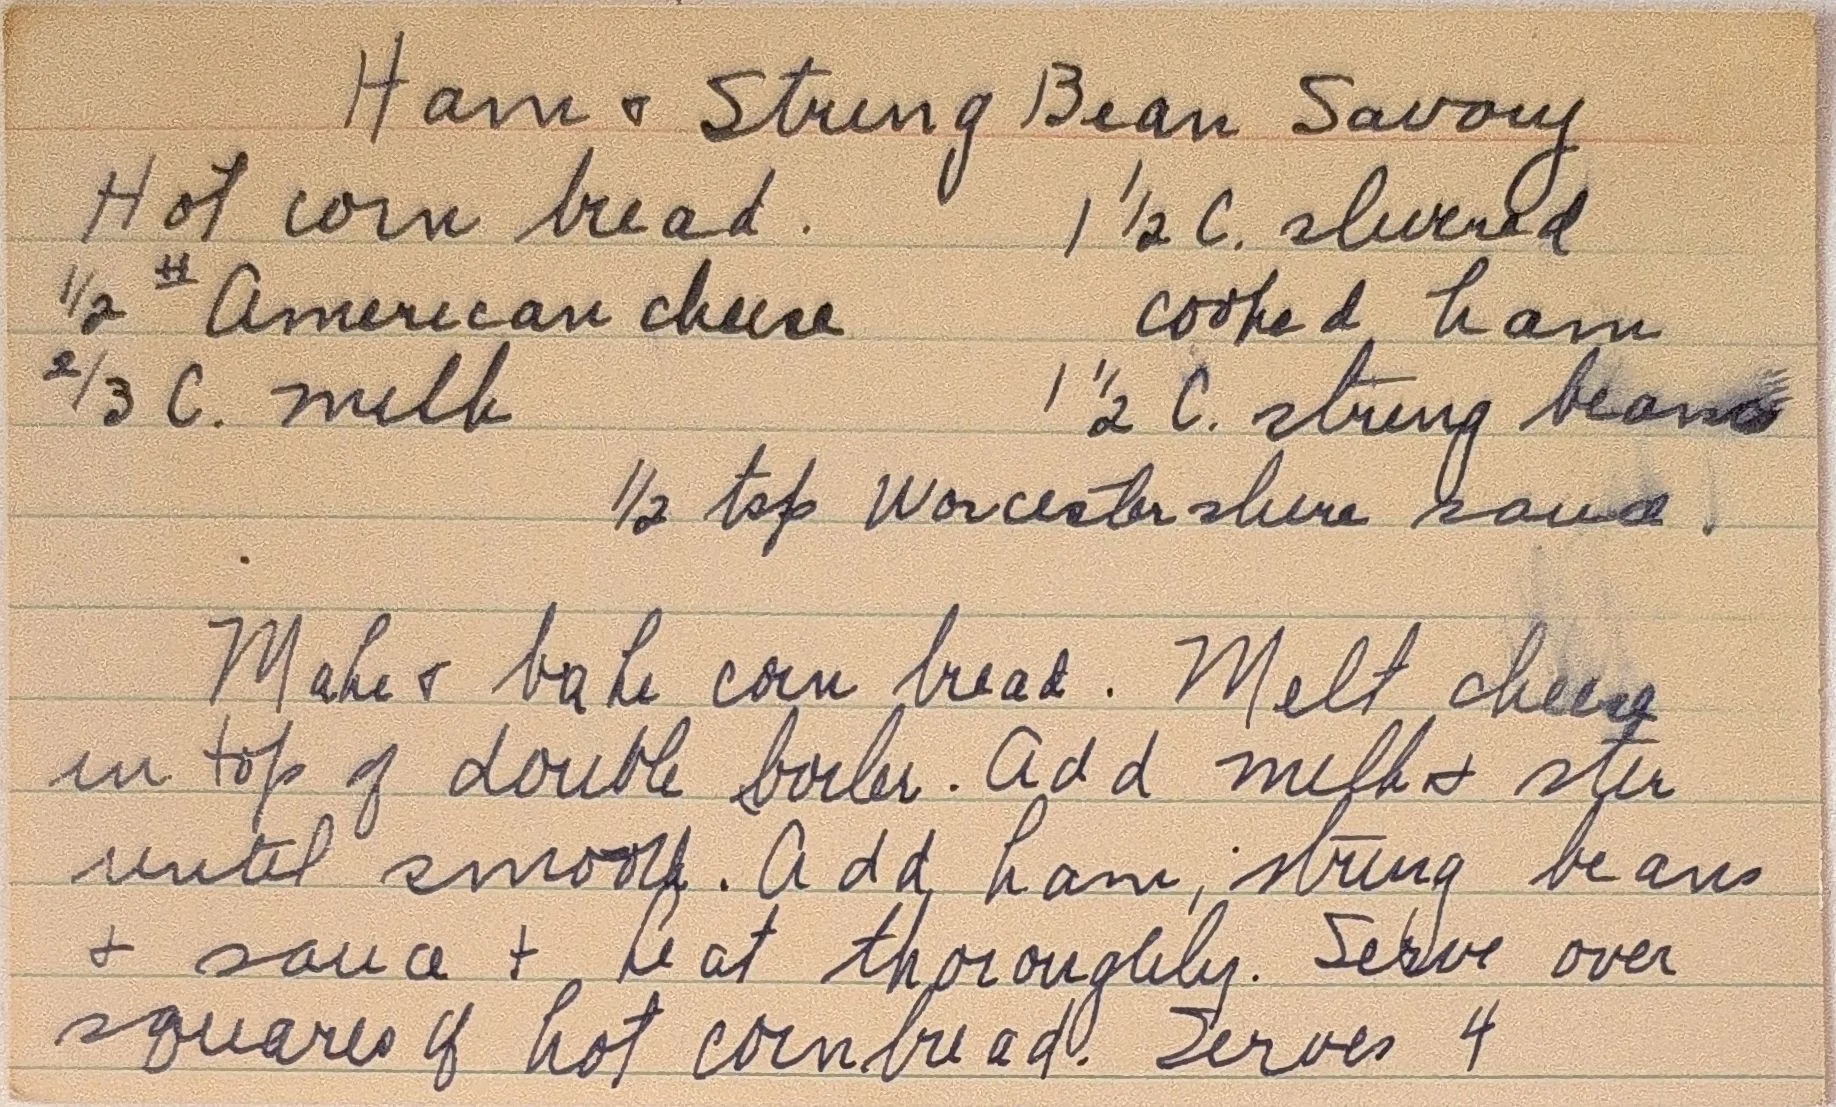 Ham & String Bean Savory
Hot corn bread. 1 1/2 C. slivered
1/2 # American cheese cooked ham
2/3 C. milk 1 1/2 C. string beans
1/2 tsp Worcestershire sauce
Make & bake corn bread. Melt cheese
in top of double boiler. Add milk & stir
until smooth. Add ham, string beans
& sauce & heat thoroughly. Serve over
squares of hot cornbread. Serves 4